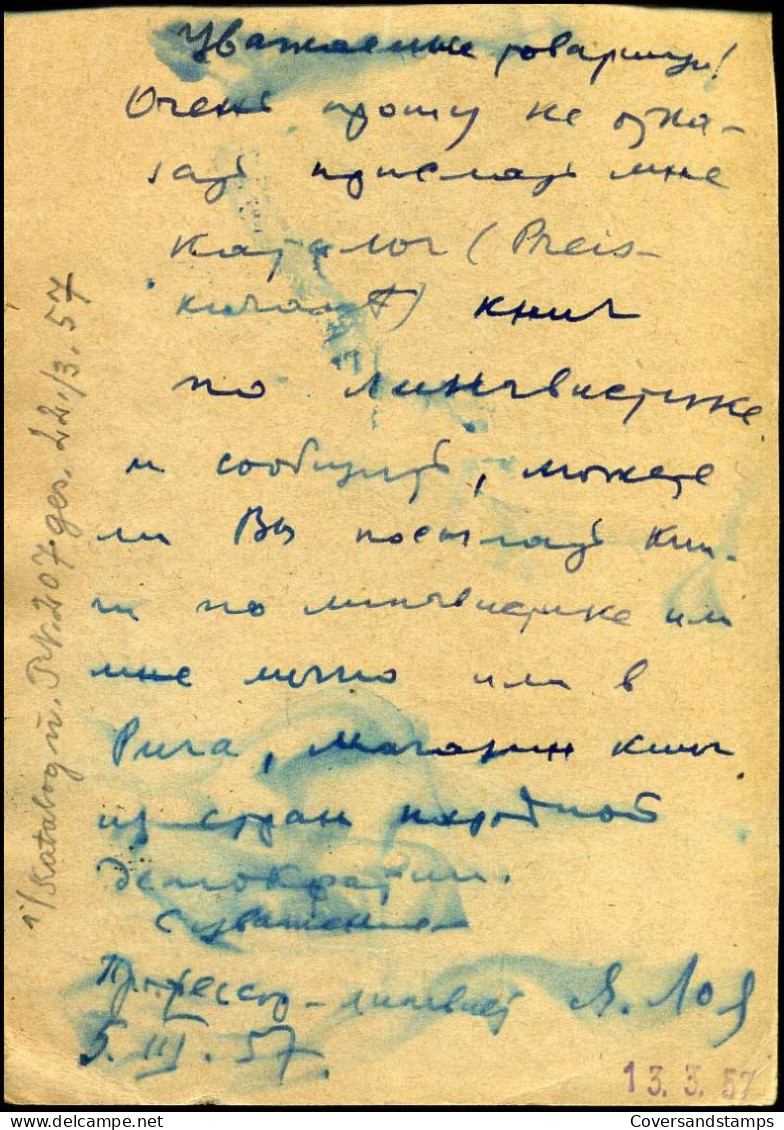 Уважаемые товарищи!
Очень прошу не отка-
зать прислать мне
каталог (Preis-
kurant) книг
по лингвистике
и сообщить, можете
ли Вы посылать кни-
ги по лингвистике или
мне лично или в
Рига, магазин книг
из стран народной
демократии.
С уважением
Профессор-лингвист Я. Лоя
5.III.57.
1/Katalog u. Rv. 207 ges. 22./3.57
13.3.57
Coversandstamps